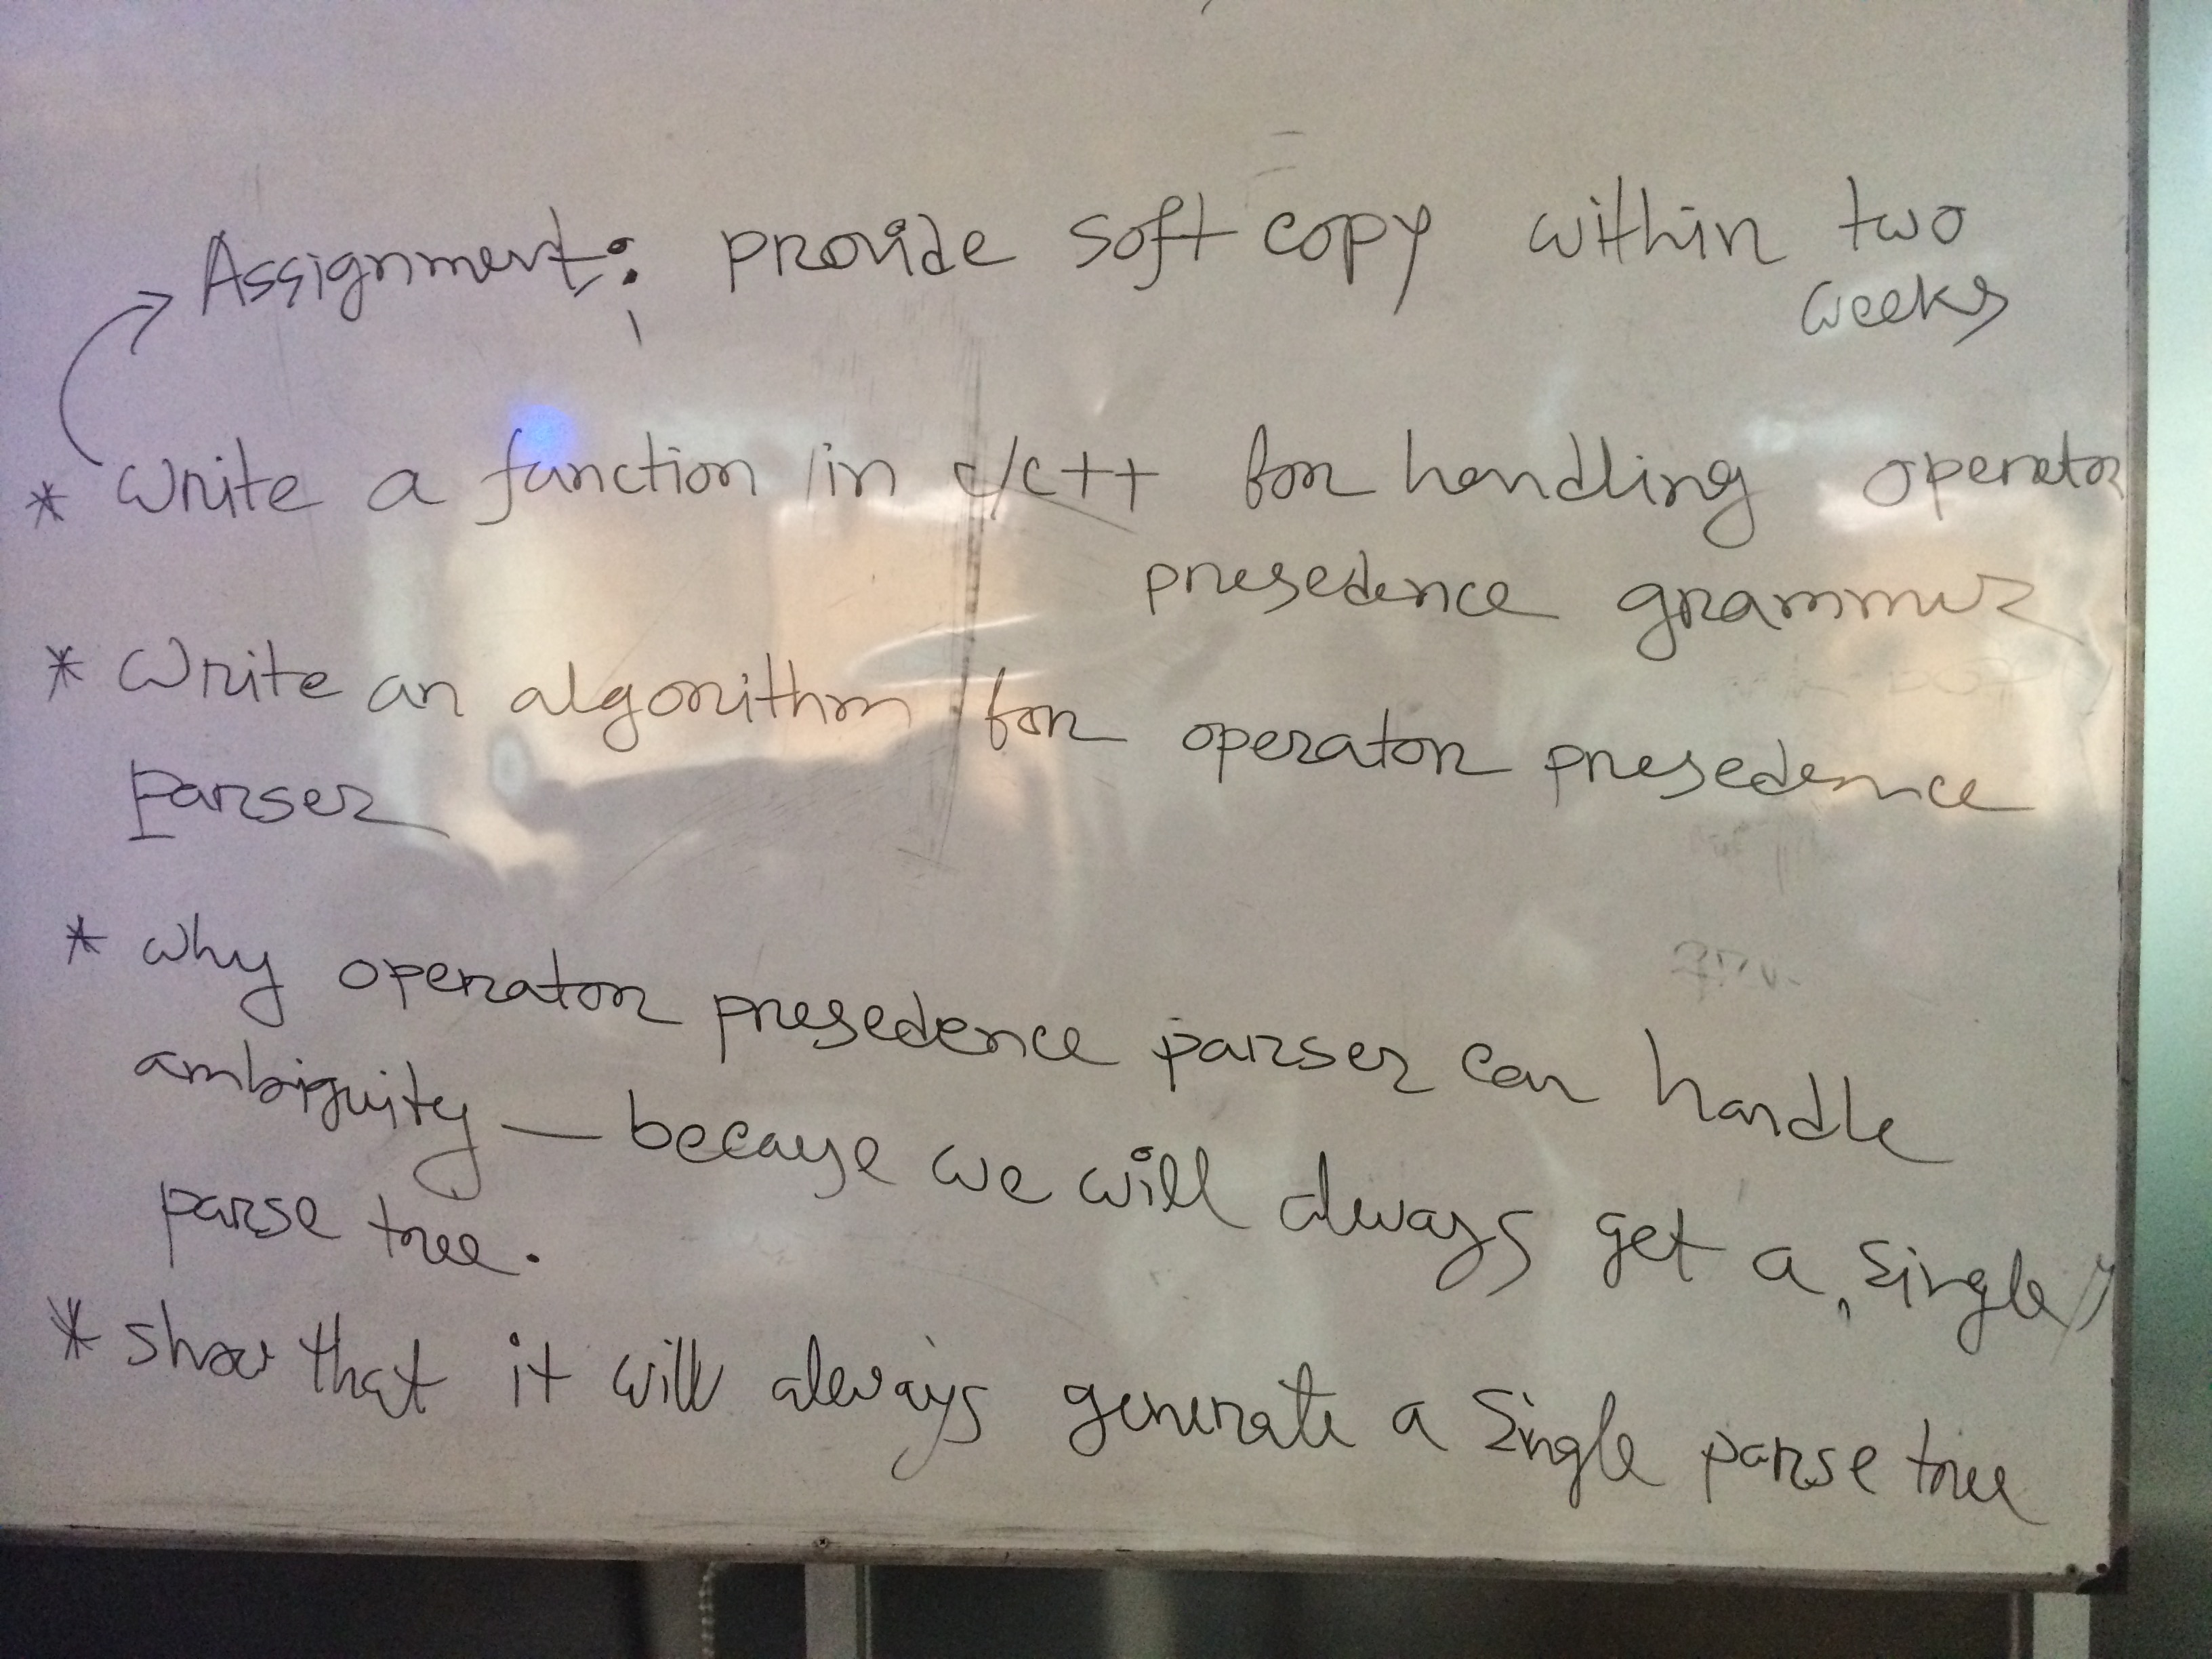 Assignment: provide soft copy within two
weeks
* Write a function in c/c++ for handling operator
presedence grammer
* Write an algorithm for operator presedence
parser
* why operator presedence parser can handle
ambiguity — because we will always get a single
parse tree.
* show that it will always generate a single parse tree